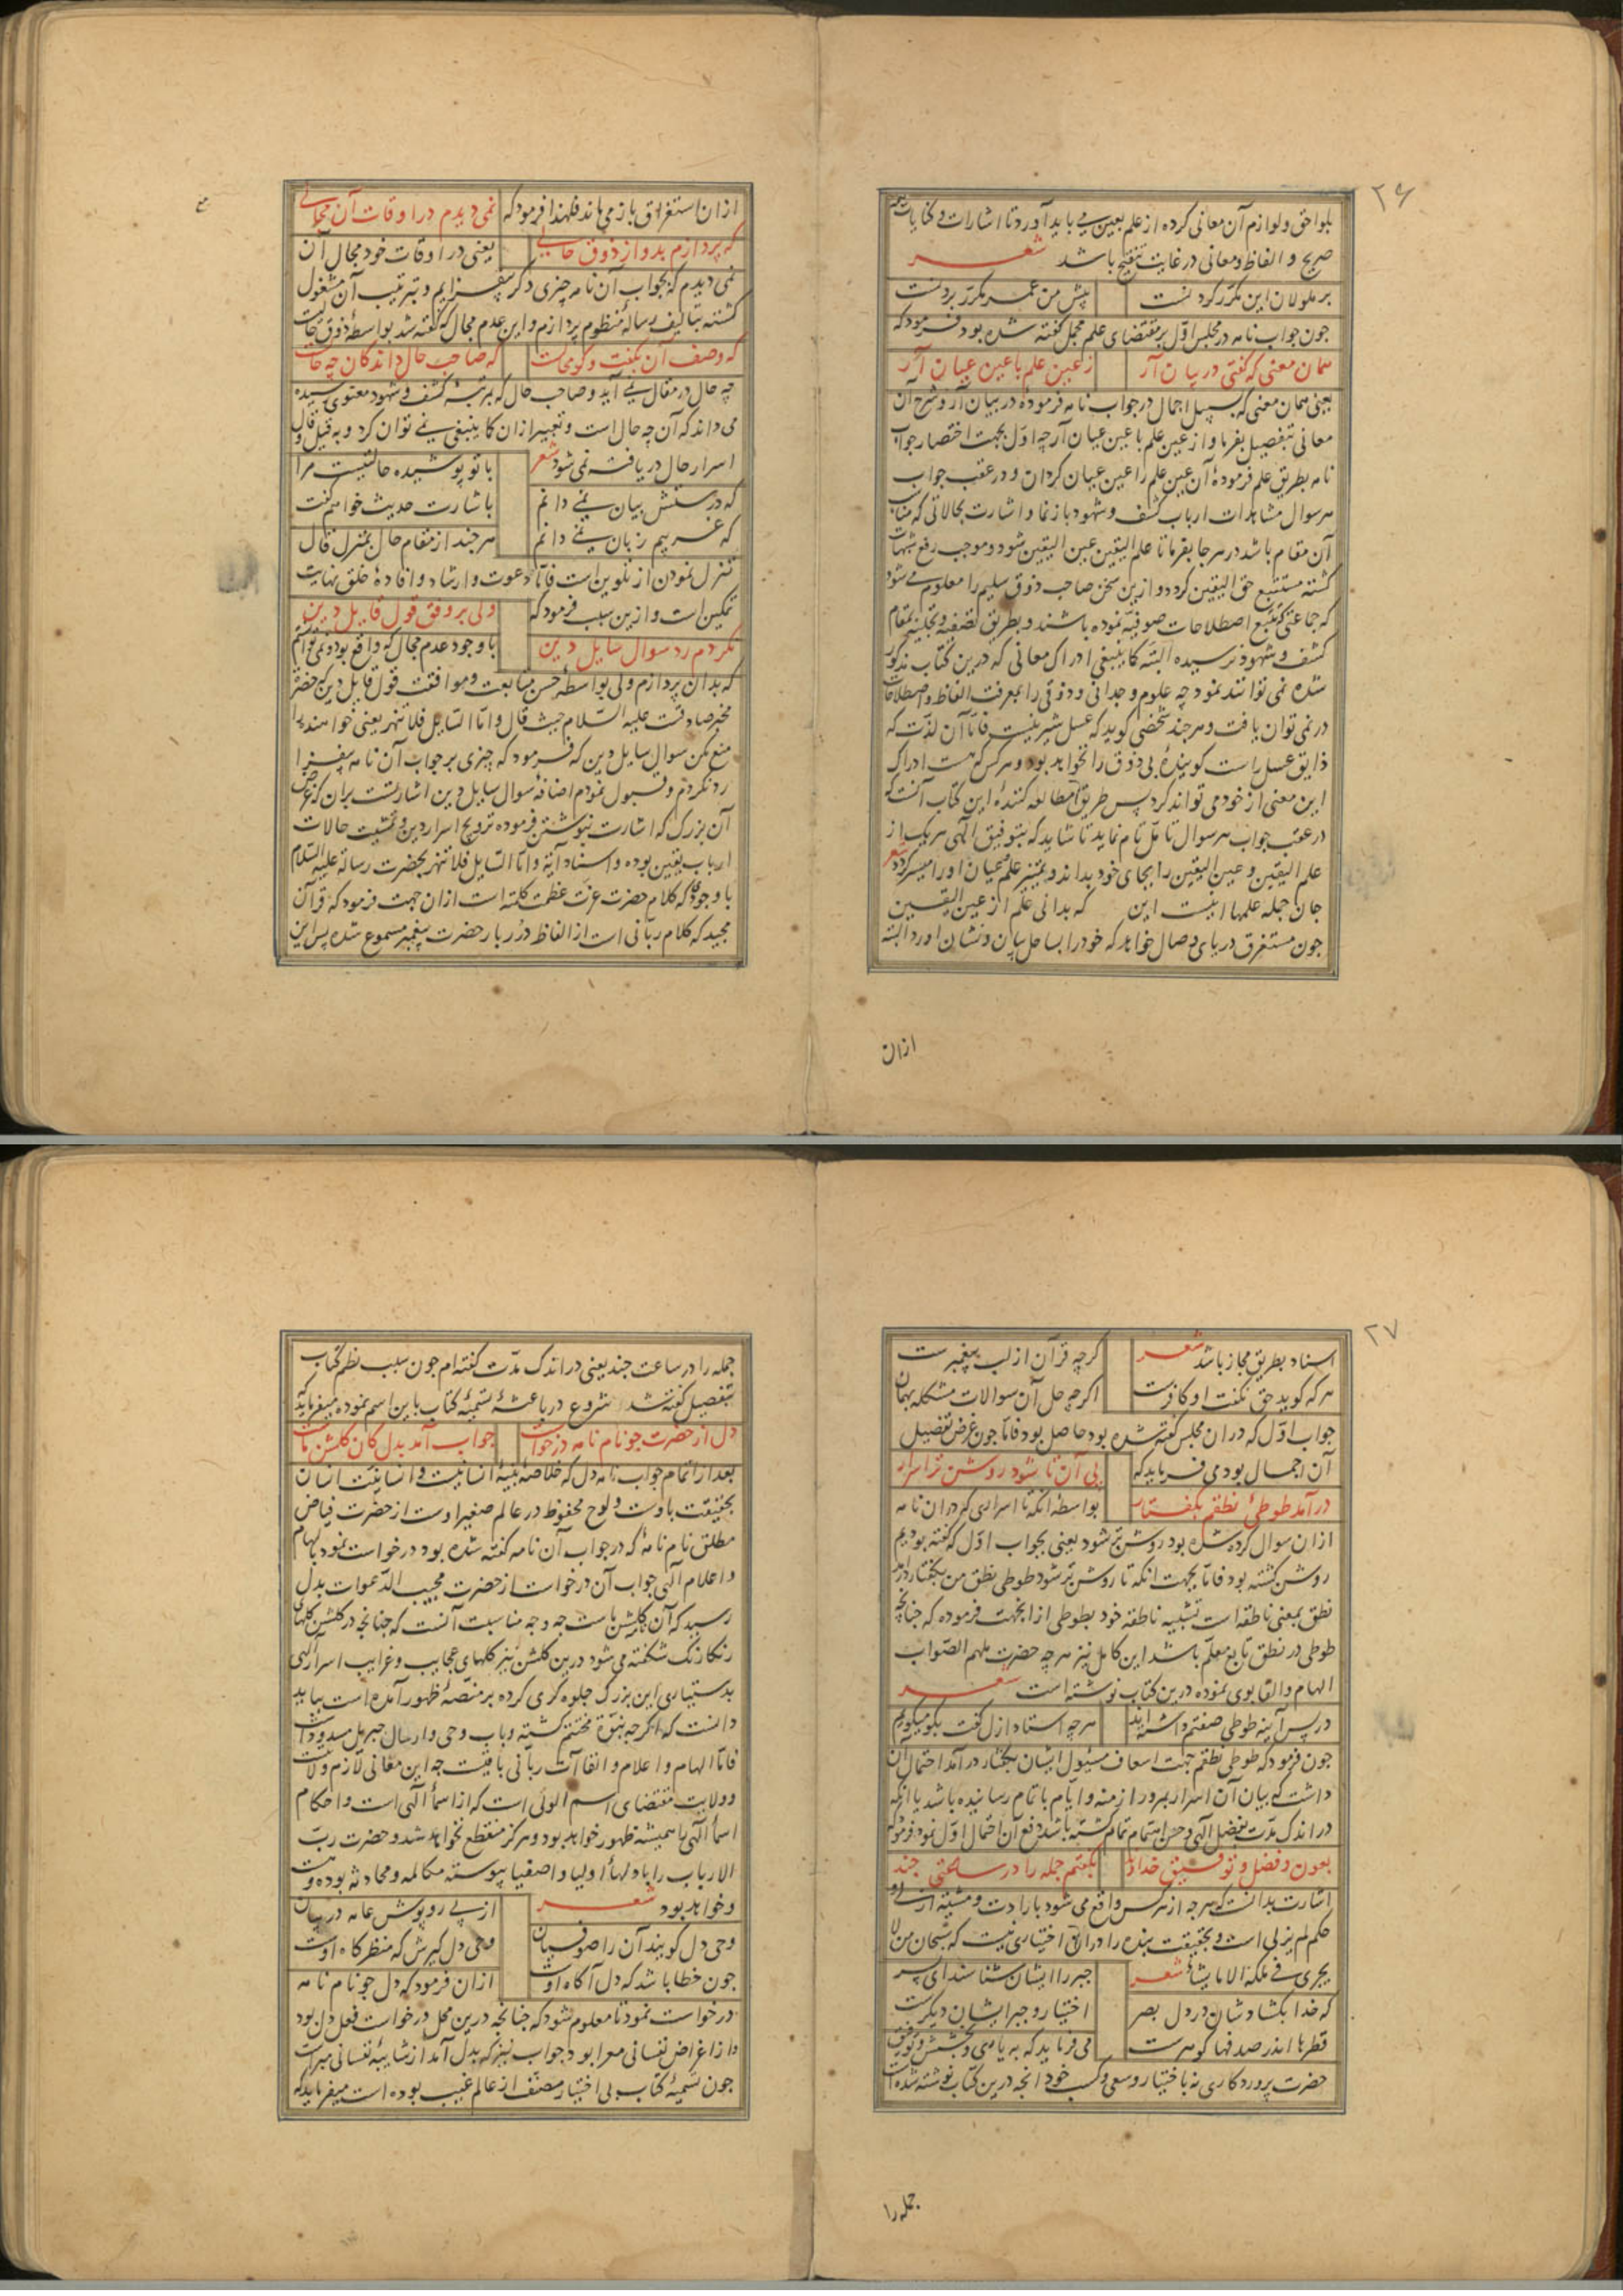 ٢٦
بلواحق و لوازم آن معانی کرده از علم بعین می باید آورد تا اشارات و کنایات
صریح و الفاظ و معانی در غایت تنقیح باشد شعر
بر ملولان این مکرر کردنست پیش من عمر مکرر بردنست
جون جواب نامه در مجلس اول بر مقتضای علم مجمل کفته شده بود فرمود که
همان معنی که کفتی در بیان آر ز عین علم با عین عیان آر
یعنی همان معنی که بسبیل اجمال در جواب نامه فرمودهٔ در بیان آر و شرح آن
معانی بتفصیل بفرما و از عین علم با عین عیان آر چه اول بجهت اختصار جواب
نامه بطریق علم فرمودهٔ آن عین علم را عین عیان کردان و در عقب جواب
هر سوال مشاهدات ارباب کشف و شهود باز نما و اشارت بحالاتی که مناسب
آن مقام باشد در هر جا بفرما تا علم الیقین عین الیقین شود و موجب رفع شبهات
کشته مستتبع حق الیقین کردد و ازین سخن صاحب ذوق سلیم را معلوم می شود
که جماعتی که تتبع اصطلاحات صوفیه نموده باشند و بطریق تصفیه و تجلیه بمقام
کشف و شهود نرسیده البته کما ینبغی ادراک معانی که درین کتاب مذکور
شده نمی توانند نمود چه علوم وجدانی و ذوقی را بمعرفت الفاظ و اصطلاحات
در نمی توان یافت و هر چند شخصی کوید که عسل شیرینست فاما آن لذت که
ذایق عسل راست کویندهٔ بی ذوق را نخواهد بود و هر کس که هست ادراک
این معنی از خود می تواند کرد پس طریق مطالعه کنندهٔ این کتاب آنست که
در عقب جواب هر سوال تأمل تام نماید تا شاید که بتوفیق الهی هر یک از
علم الیقین و عین الیقین را بجای خود بداند و تمییز علم و عیان او را میسر کردد شعر
جان جمله علمها اینست این که بدانی علم از عین الیقین
جون مستغرق دریای وصال خواهد که خود را بساحل بیان و نشان آورد البته
ازان
ازان استغراق باز می ماند فلهذا فرمود که نمی دیدم در اوقات آن مجالی
که پردازم بدو از ذوق حالی یعنی در اوقات خود مجال آن
نمی دیدم که بجواب آن نامه چیزی دکر بیفزایم و بترتیب آن مشغول
کشته بتالیف رسالهٔ منظوم پردازم و این عدم مجال که کفته شد بواسطهٔ ذوق حالست
که وصف آن بکفت و کو محالست که صاحب حال داند کان چه حالست
چه حال در مقال نمی آید و صاحب حال که بمرتبهٔ کشف و شهود معنوی رسیده
می داند که آن چه حال است و تعبیر ازان کما ینبغی نمی توان کرد و به قیل و قال
اسرار حال دریافته نمی شود شعر با تو پوشیده حالتیست مرا
که درستش بیان نمی دانم باشارت حدیث خواهم کفت
که عربیم زبان نمی دانم هر چند از مقام حال بمنزل قال
تنزل نمودن از تلوین است فاما دعوت و ارشاد و افادهٔ خلق نهایت
تمکین است و ازین سبب فرمود که ولی بر وفق قول قایل دین
نکردم رد سوال سایل دین با وجود عدم مجال که واقع بود و نمی خواستم
که بدان پردازم ولی بواسطهٔ حسن متابعت و موافقت قول قایل دین که حضرت
مخبر صادقست علیه السلام حیث قال و اما السایل فلا تنهر یعنی خواهنده را
منع مکن سوال سایل دین که فرمود که چیزی بر جواب آن نامه بیفزا
رد نکردم و قبول نمودم اضافهٔ سوال سایل دین اشارتست بران که غرض
آن بزرک که اشارت بنوشتن فرموده ترویج اسرار دین و تمشیت حالات
ارباب یقین بوده و اسناد آیهٔ و اما السایل فلا تنهر بحضرت رسالة علیه السلام
با وجود که کلام حضرت عزت عظمت کلمته است ازان جهت فرمود که قرآن
مجید که کلام ربانی است از الفاظ درر بار حضرت پیغمبر مسموع شده پس این
٢٧
اسناد بطریق مجاز باشد شعر کرچه قرآن از لب پیغمبرست
هر که کوید حق نکفت او کافرست اکرچه حل آن سوالات مشکله بهمان
جواب اول که دران مجلس کفته شده بود حاصل بود فاما جون غرض تفصیل
آن اجمال بود می فرماید که پی آن تا شود روشن تر اسرار
در آمد طوطی نطقم بکفتار بواسطهٔ آنکه تا اسراری که دران نامه
ازان سوال کرده شده بود روشن تر شود یعنی بجواب اول که کفته بودیم
روشن کشته بود فاما بجهت آنکه تا روشن تر شود طوطی نطق من بکفتار درآمد
نطق بمعنی ناطقه است تشبیه ناطقه خود بطوطی ازان جهت فرموده که چنانچه
طوطی در نطق تابع معلم باشد این کامل نیز هر چه حضرت ملهم الصواب
الهام و القا بوی نموده درین کتاب نوشته است شعر
در پس آینه طوطی صفتم داشته اند هرچه استاد ازل کفت بکو میکویم
جون فرمود که طوطی نطقم جهت اسعاف مسئول ایشان بکفتار درآمد احتمال آن
داشت که بیان آن اسرار بمرور ازمنه و ایام باتمام رسانیده باشد یا آنکه
در اندک مدت بفضل الهی و حسن اهتمام تمام کشته باشد دفع آن احتمال اول نمود فرمود که
بعون و فضل و توفیق خداوند بکفتم جمله را در ساعتی جند
اشارت بدانست که هر چه از هر کس واقع می شود بارادت و مشیة ازلی و
حکم لم یزلی است و بحقیقت بنده را دران اختیاری نیست که سبحان من لا
یجری فی ملکه الا ما یشاء شعر جبر را ایشان شناسند ای پسر
که خدا بکشاد شان در دل بصر اختیار و جبر ایشان دیکرست
قطرها اندر صدفها کوهرست می فرماید که به یاری و بخشش و توفیق
حضرت پروردکاری نه باختیار و سعی و کسب خود آنچه درین کتاب نوشته شده است
جمله را
جمله را در ساعت جند یعنی در اندک مدت کفته ام جون سبب نظم کتاب
بتفصیل کفته شد شروع در باعثهٔ تسمیهٔ کتاب باین اسم نموده میفرماید که
دل از حضرت جو نام نامه درخواست جواب آمد بدل کان کلشن ماست
بعد از اتمام جواب نامه دل که خلاصهٔ بنیهٔ انسانیست و انسانیت انسان
بحقیقت باوست و لوح محفوظ در عالم صغیر اوست از حضرت فیاض
مطلق نام نامهٔ که در جواب آن نامه کفته شده بود درخواست نمود بالهام
و اعلام الهی جواب آن درخواست از حضرت مجیب الدعوات بدل
رسید که آن کلشن ماست چه وجه مناسبت آنست که چنانچه در کلشن کلهای
رنکارنک شکفته می شود درین کلشن نیز کلهای عجایب و غرایب اسرار الهی
بدستیاری این بزرک جلوه کری کرده بر منصهٔ ظهور آمده است بباید
دانست که اکرچه نبوة مختتم کشته و باب وحی و ارسال جبریل مسدودست
فاما الهام و اعلام و القاآت ربانی باقیست چه این معانی لازم ولایت
و ولایت مقتضای اسم الولی است که از اسمأ الهی است و احکام
اسمأ الهی را همیشه ظهور خواهد بود و هرکز منقطع نخواهد شد و حضرت رب
الارباب را با دلهأ اولیا و اصفیا پیوسته مکالمه و محادثه بوده و هست
و خواهد بود شعر از پی روپوش عامه در بیان
وحی دل کویند آن را صوفیان وحی دل کیرش که منظرکاه اوست
جون خطا باشد که دل آکاه اوست ازان فرمود که دل جو نام نامه
درخواست نمود تا معلوم شود که چنانچه درین محل درخواست فعل دل بود
و از اغراض نفسانی معرا بود جواب نیز که بدل آمد از شایبهٔ نفسانی مبراست
جون تسمیهٔ کتاب بی اختیار مصنف از عالم غیب بوده است میفرماید که